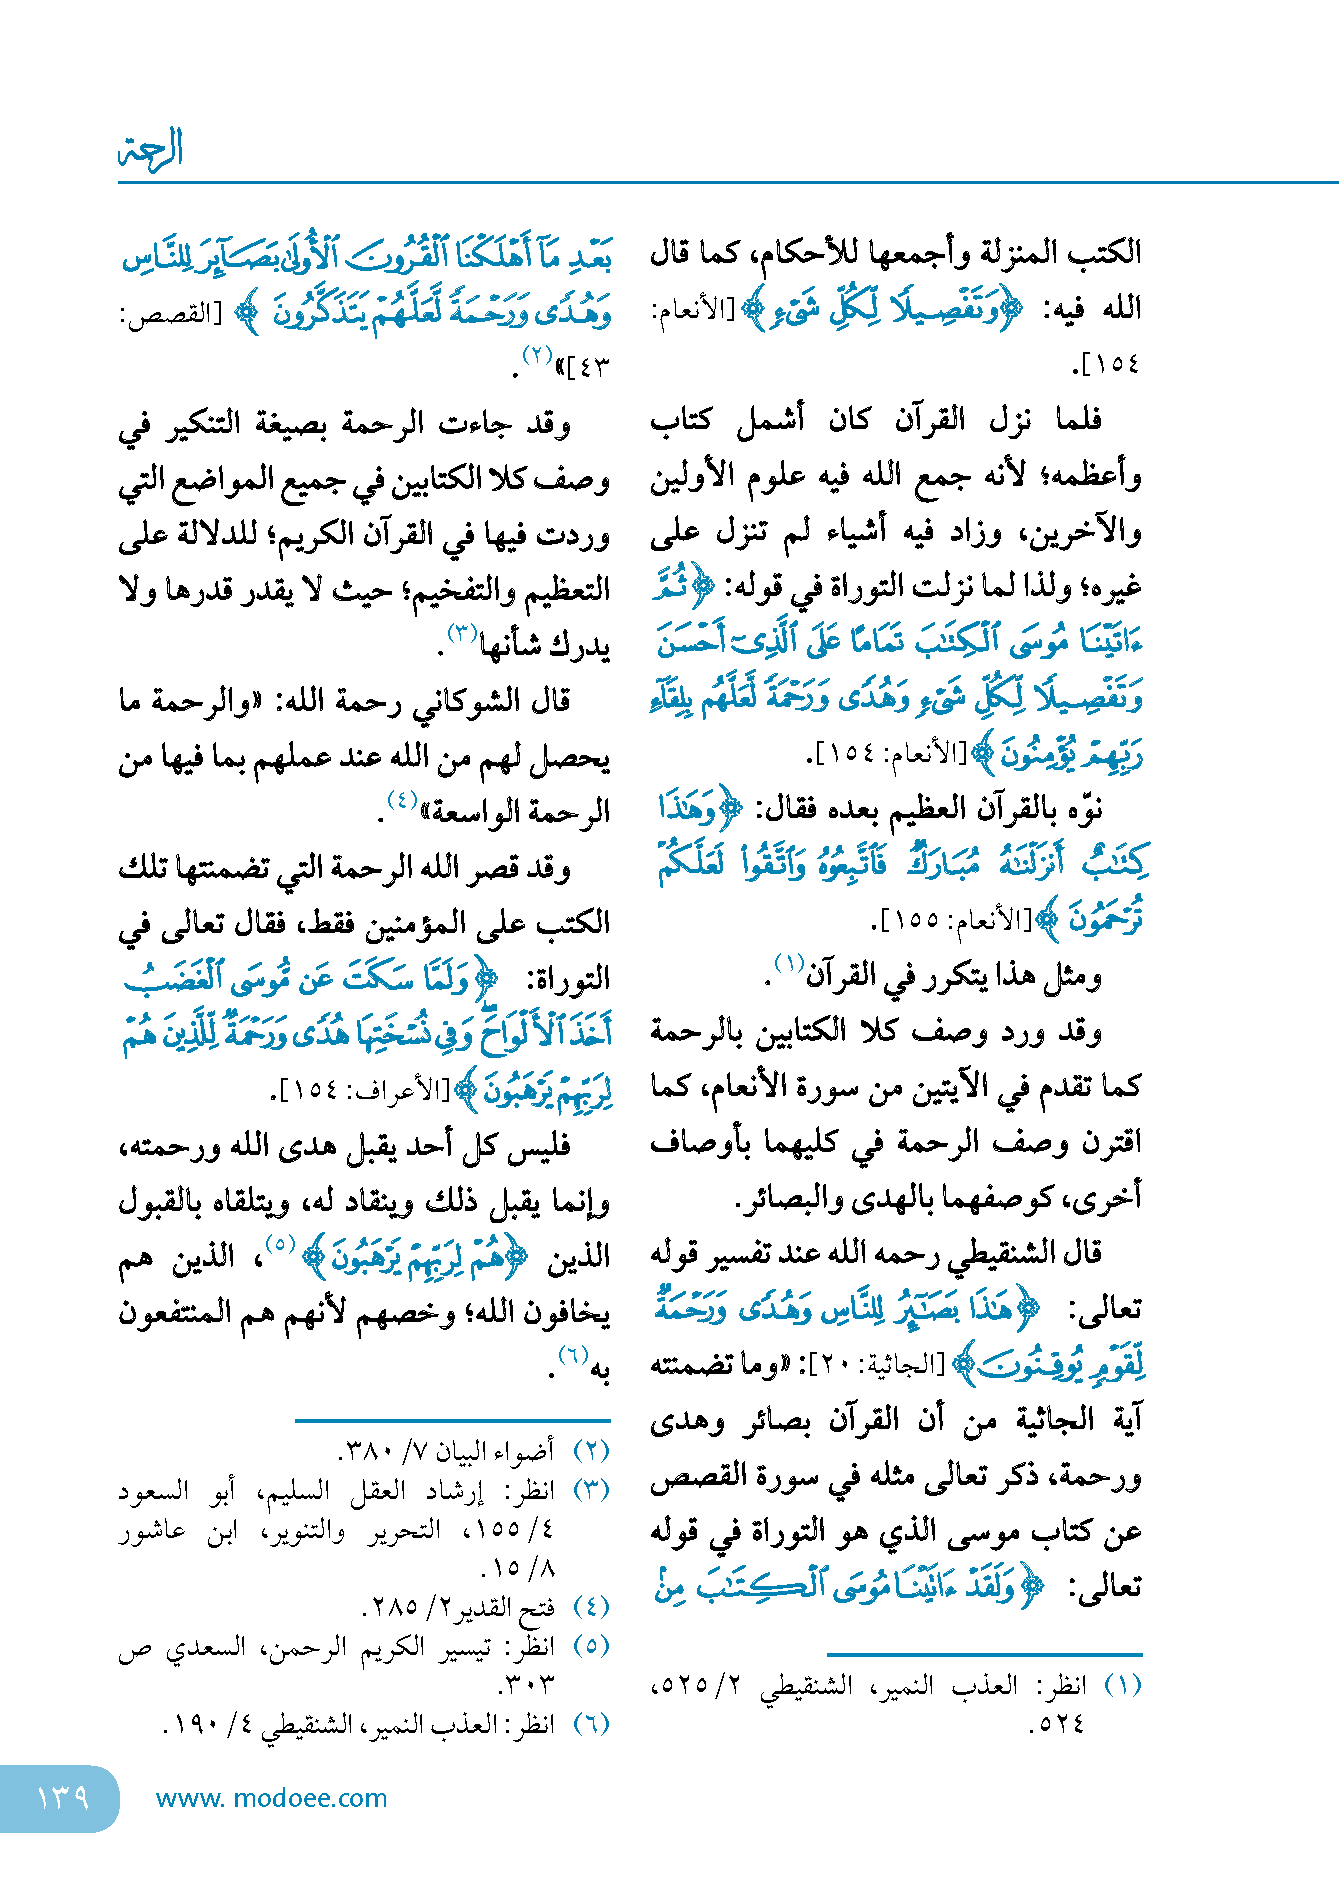 الرحمة
الكتب المنزلة وأجمعها للأحكام، كما قال
الله فيه: ﴿وَتَفْصِيلًا لِّكُلِّ شَيْءٍ﴾ [الأنعام:
١٥٤].
فلما نزل القرآن كان أشمل كتاب
وأعظمه؛ لأنه جمع الله فيه علوم الأولين
والآخرين، وزاد فيه أشياء لم تنزل على
غيره؛ ولذا لما نزلت التوراة في قوله: ﴿ثُمَّ
ءَاتَيْنَا مُوسَى ٱلْكِتَٰبَ تَمَامًا عَلَى ٱلَّذِىٓ أَحْسَنَ
وَتَفْصِيلًا لِّكُلِّ شَىْءٍ وَهُدًى وَرَحْمَةً لَّعَلَّهُم بِلِقَآءِ
رَبِّهِمْ يُؤْمِنُونَ﴾ [الأنعام: ١٥٤].
نوّه بالقرآن العظيم بعده فقال: ﴿وَهَٰذَا
كِتَٰبٌ أَنزَلْنَٰهُ مُبَارَكٌ فَٱتَّبِعُوهُ وَٱتَّقُوا۟ لَعَلَّكُمْ
تُرْحَمُونَ﴾ [الأنعام: ١٥٥].
ومثل هذا يتكرر في القرآن(١).
وقد ورد وصف كلا الكتابين بالرحمة
كما تقدم في الآيتين من سورة الأنعام، كما
اقترن وصف الرحمة في كليهما بأوصاف
أخرى، كوصفهما بالهدى والبصائر.
قال الشنقيطي رحمه الله عند تفسير قوله
تعالى: ﴿هَٰذَا بَصَٰٓئِرُ لِلنَّاسِ وَهُدًى وَرَحْمَةٌ
لِّقَوْمٍ يُوقِنُونَ﴾ [الجاثية: ٢٠]: «وما تضمنته
آية الجاثية من أن القرآن بصائر وهدى
ورحمة، ذكر تعالى مثله في سورة القصص
عن كتاب موسى الذي هو التوراة في قوله
تعالى: ﴿وَلَقَدْ ءَاتَيْنَا مُوسَى ٱلْكِتَٰبَ مِنۢ
(١) انظر: العذب النمير، الشنقيطي ٢/ ٥٢٥،
٥٢٤.
بَعْدِ مَآ أَهْلَكْنَا ٱلْقُرُونَ ٱلْأُولَىٰ بَصَآئِرَ لِلنَّاسِ
وَهُدًى وَرَحْمَةً لَّعَلَّهُمْ يَتَذَكَّرُونَ﴾ [القصص:
٤٣]»(٢).
وقد جاءت الرحمة بصيغة التنكير في
وصف كلا الكتابين في جميع المواضع التي
وردت فيها في القرآن الكريم؛ للدلالة على
التعظيم والتفخيم؛ حيث لا يقدر قدرها ولا
يدرك شأنها(٣).
قال الشوكاني رحمة الله: «والرحمة ما
يحصل لهم من الله عند عملهم بما فيها من
الرحمة الواسعة»(٤).
وقد قصر الله الرحمة التي تضمنتها تلك
الكتب على المؤمنين فقط، فقال تعالى في
التوراة: ﴿وَلَمَّا سَكَتَ عَن مُّوسَى ٱلْغَضَبُ
أَخَذَ ٱلْأَلْوَاحَ ۖ وَفِى نُسْخَتِهَا هُدًى وَرَحْمَةٌ لِّلَّذِينَ هُمْ
لِرَبِّهِمْ يَرْهَبُونَ﴾ [الأعراف: ١٥٤].
فليس كل أحد يقبل هدى الله ورحمته،
وإنما يقبل ذلك وينقاد له، ويتلقاه بالقبول
الذين ﴿هُمْ لِرَبِّهِمْ يَرْهَبُونَ﴾(٥)، الذين هم
يخافون الله؛ وخصهم لأنهم هم المنتفعون
به(٦).
(٢) أضواء البيان ٧/ ٣٨٠.
(٣) انظر: إرشاد العقل السليم، أبو السعود
٤/ ١٥٥، التحرير والتنوير، ابن عاشور
٨/ ١٥.
(٤) فتح القدير٢/ ٢٨٥.
(٥) انظر: تيسير الكريم الرحمن، السعدي ص
٣٠٣.
(٦) انظر: العذب النمير، الشنقيطي ٤/ ١٩٠.
١٣٩ www. modoee.com